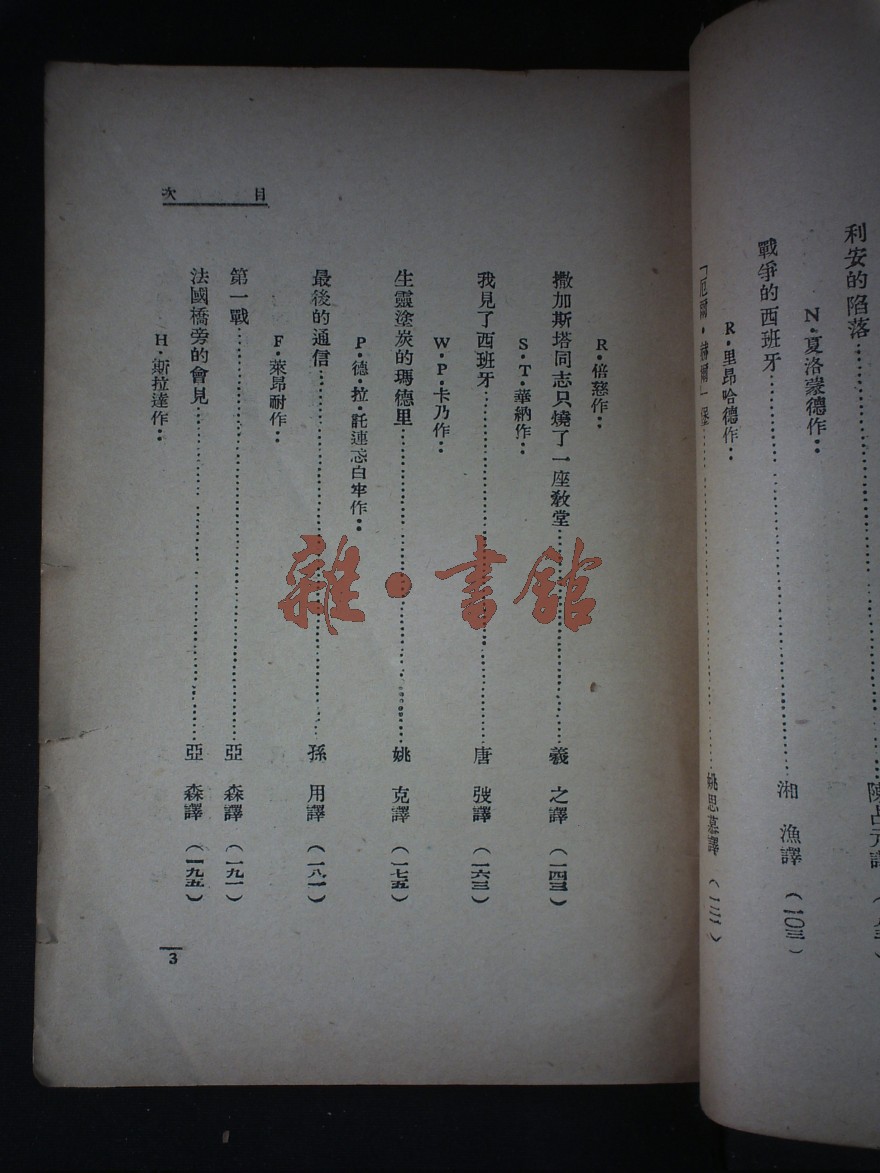 利安的陷落
N·夏洛蒙德作：
戰爭的西班牙 湘 漁譯 (一〇三)
R·里昂哈德作：
姚思慕譯
目 次
R·倍慈作：
撒加斯塔同志只燒了一座教堂 羲 之譯 (一四三)
S·T·華納作：
我見了西班牙 唐 弢譯 (一六三)
W·P·卡乃作：
生靈塗炭的瑪德里 姚 克譯 (一七五)
P·德·拉·託連忒白牢作：
最後的通信 孫 用譯 (一八一)
F·萊昂耐作：
第一戰 亞 森譯 (一九一)
法國橋旁的會見 亞 森譯 (一九五)
H·斯拉達作：
3
雜·書館